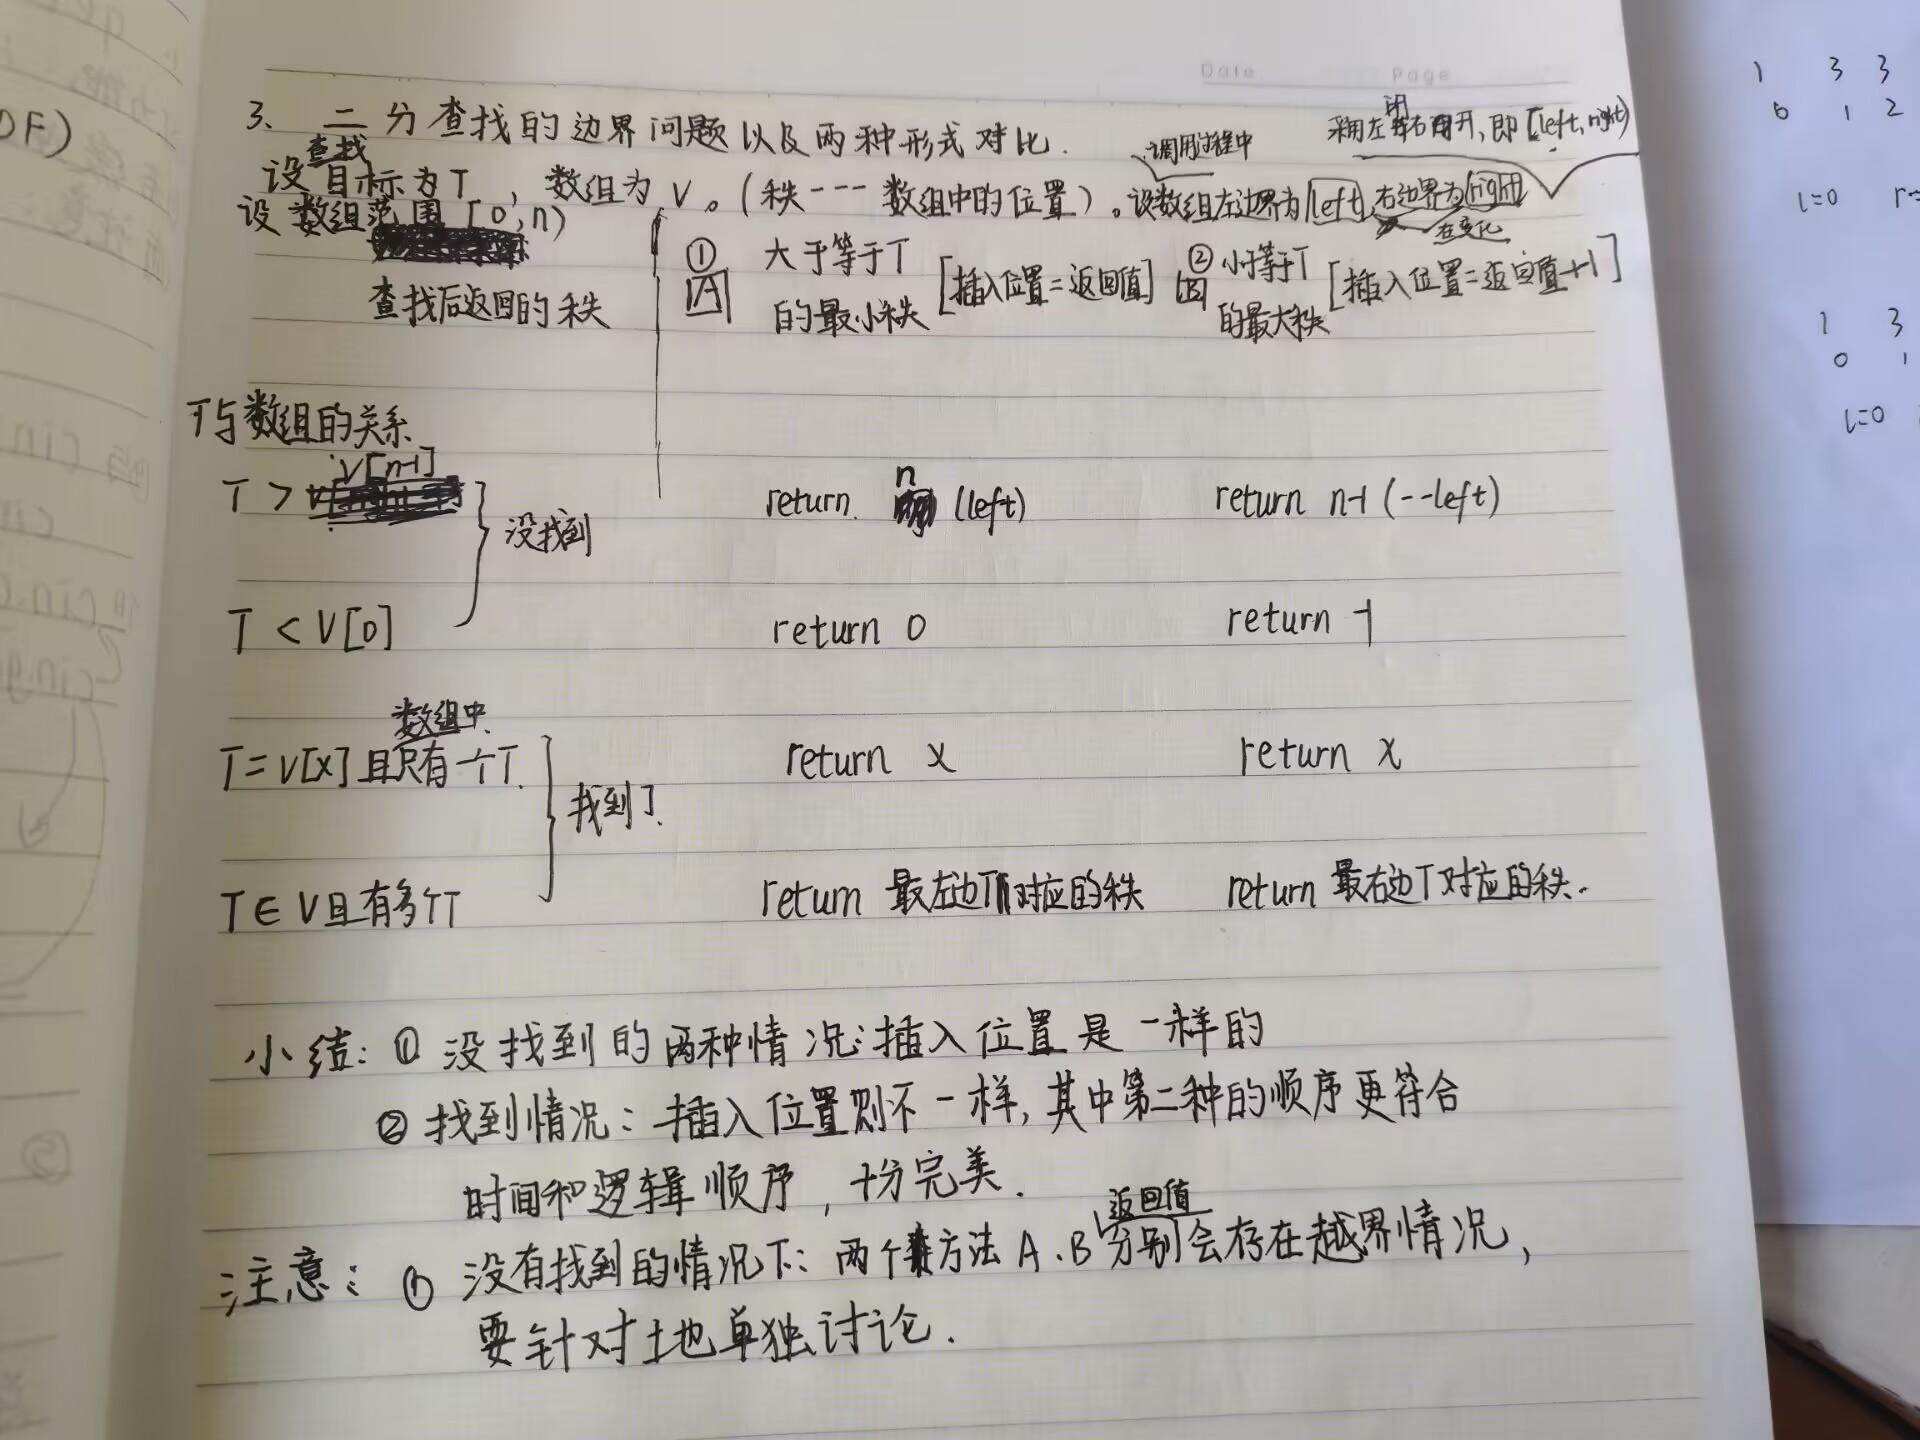 Date Page
3、二分查找的边界问题以及两种形式对比.
调用过程中 采用左闭右开,即[left,right)
设查找目标为T,数组为V。(秩---数组中的位置)。设数组左边界为left,右边界为right
在变化
设数组范围[0,n)
查找后返回的秩
① 大于等于T的最小秩 [插入位置=返回值]
A
② 小于等于T的最大秩 [插入位置=返回值+1]
B
T与数组的关系
T > V[n-1] return n (left) return n-1 (--left)
没找到
T < V[0] return 0 return -1
T=V[x]且数组中只有一个T. return x return x
找到了.
T∈V且有多个T return 最左边T对应的秩 return 最右边T对应的秩.
小结:① 没找到的两种情况:插入位置是一样的
② 找到情况:插入位置则不一样,其中第二种的顺序更符合
时间和逻辑顺序,十分完美.
注意:① 没有找到的情况下:两个方法A、B返回值分别会存在越界情况,
要针对土地单独讨论.
DF)
1 3 3
0 1 2
l=0
1 3
0 1
l=0